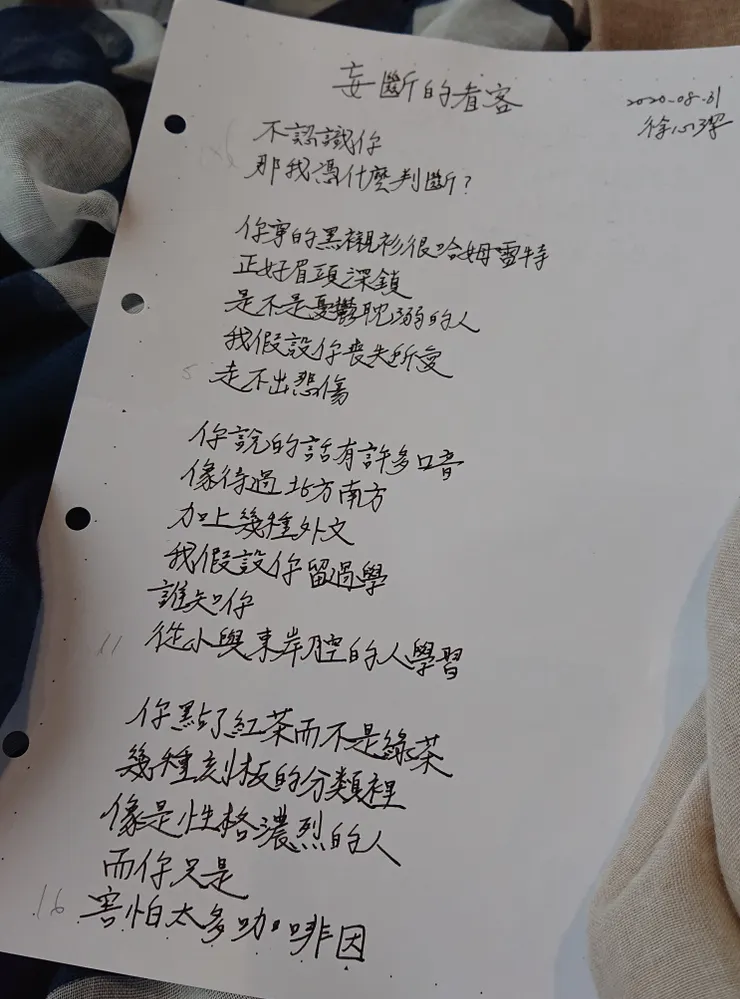 妄斷的看客
2020-08-31
徐心潔
不認識你
那我憑什麼判斷？
你穿的黑襯衫很哈姆雷特
正好眉頭深鎖
是不是憂鬱耽溺的人
我假設你喪失所愛
5 走不出悲傷
你說的話有許多口音
像待過北方南方
加上幾種外文
我假設你留過學
誰知你
11 從小與東岸腔的人學習
你點了紅茶而不是綠茶
幾種刻板的分類裡
像是性格濃烈的人
而你只是
16 害怕太多咖啡因